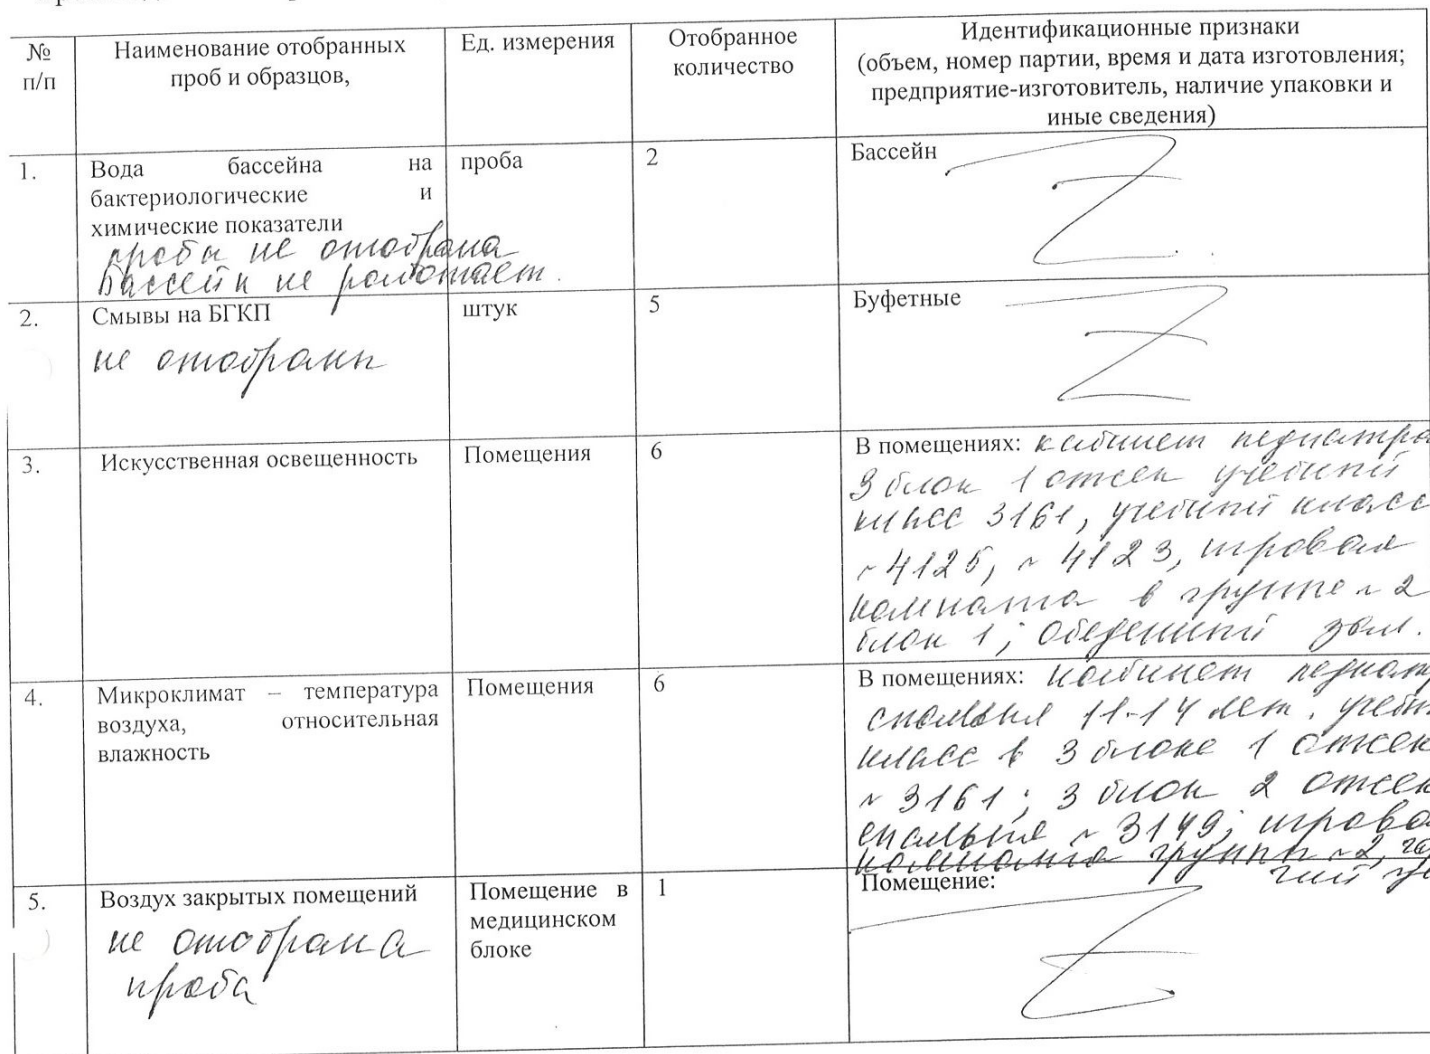 №
п/п
Наименование отобранных
проб и образцов,
Ед. измерения
Отобранное
количество
Идентификационные признаки
(объем, номер партии, время и дата изготовления;
предприятие-изготовитель, наличие упаковки и
иные сведения)
1.
Вода бассейна на
бактериологические и
химические показатели
пробы не отобрана
бассейн не работает.
проба
2
Бассейн
2.
Смывы на БГКП
не отобраны
штук
5
Буфетные
3.
Искусственная освещенность
Помещения
6
В помещениях: кабинет педиатра
3 блок 1 отсек учебный
класс 3161, учебный класс
№4125, №4123, игровая
комната в группе №2
блок 1; обеденный зал.
4.
Микроклимат – температура
воздуха, относительная
влажность
Помещения
6
В помещениях: кабинет педиатр
спальня 11-14 лет. учебн
класс в 3 блоке 1 отсек
№3161; 3 блок 2 отсек
спальня №3149; игрова
комната группы №2,
5.
Воздух закрытых помещений
не отобрана
проба
Помещение в
медицинском
блоке
1
Помещение: